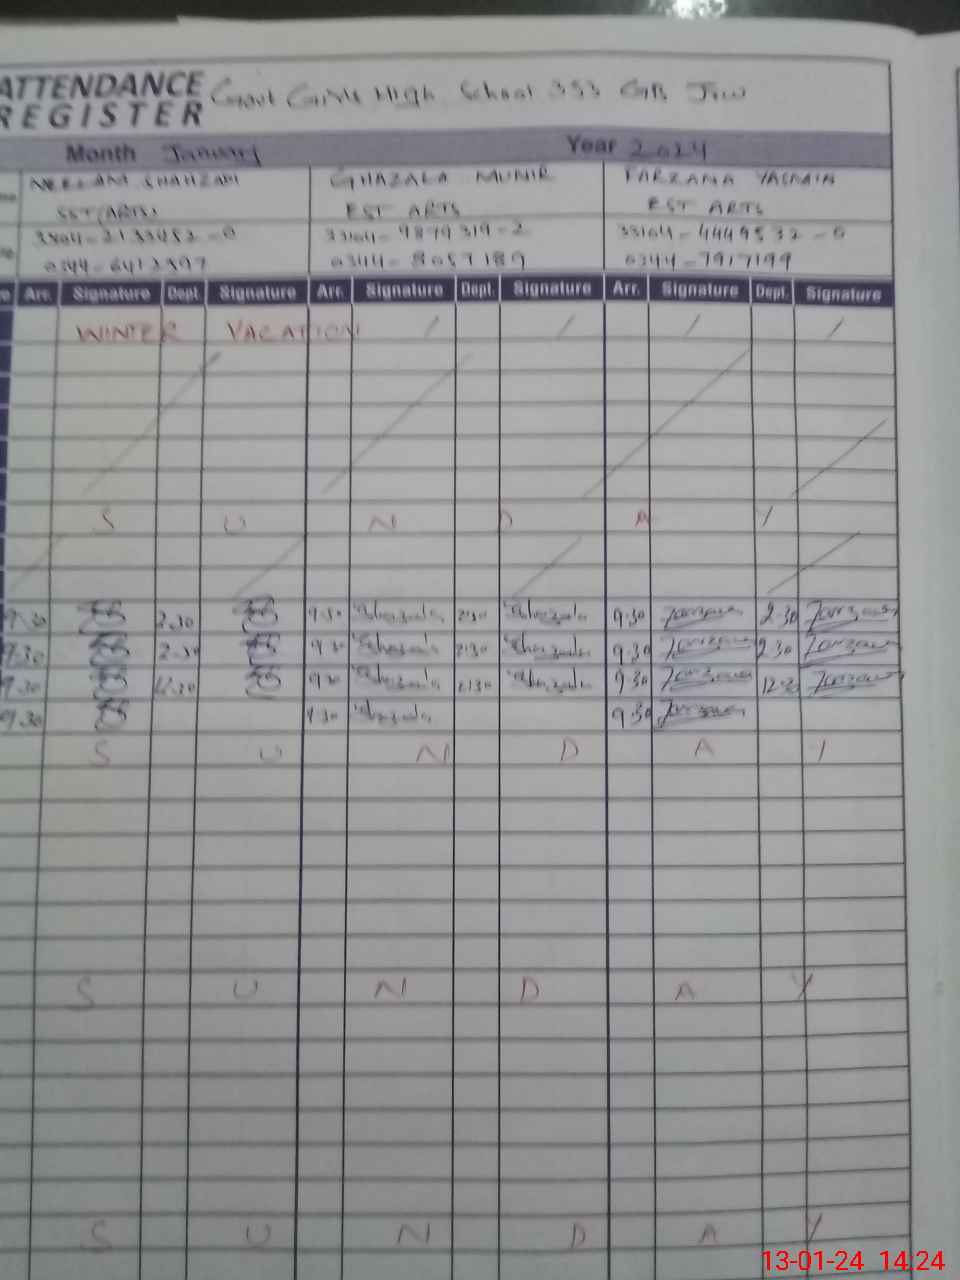 ATTENDANCE REGISTER Govt Girls High School 353 GB
Month January Year 2024
NEELAM SHAHZADI GHAZALA MUNIR FARZANA YASMIN
SST(ARTS) EST ARTS EST ARTS
33104-9879319-2 33104-4449532-0
0344-6412397 0344-8057189 0344-7917199
Arr. Signature Dept. Signature Arr. Signature Dept. Signature Arr. Signature Dept. Signature
WINTER VACATION / / / /
S U N D A Y
9.30 2.30 9.30 Ghazala 2.30 Ghazala 9.30 Farzana 2.30 Farzana
9.30 2.30 9.30 Ghazala 2.30 Ghazala 9.30 Farzana 2.30 Farzana
9.30 12.30 9.30 Ghazala Ghazala 9.30 Farzana 12.30 Farzana
9.30 9.30 Ghazala 9.30 Farzana
S U N D A Y
S U N D A Y
S U N D A Y
13-01-24 14:24